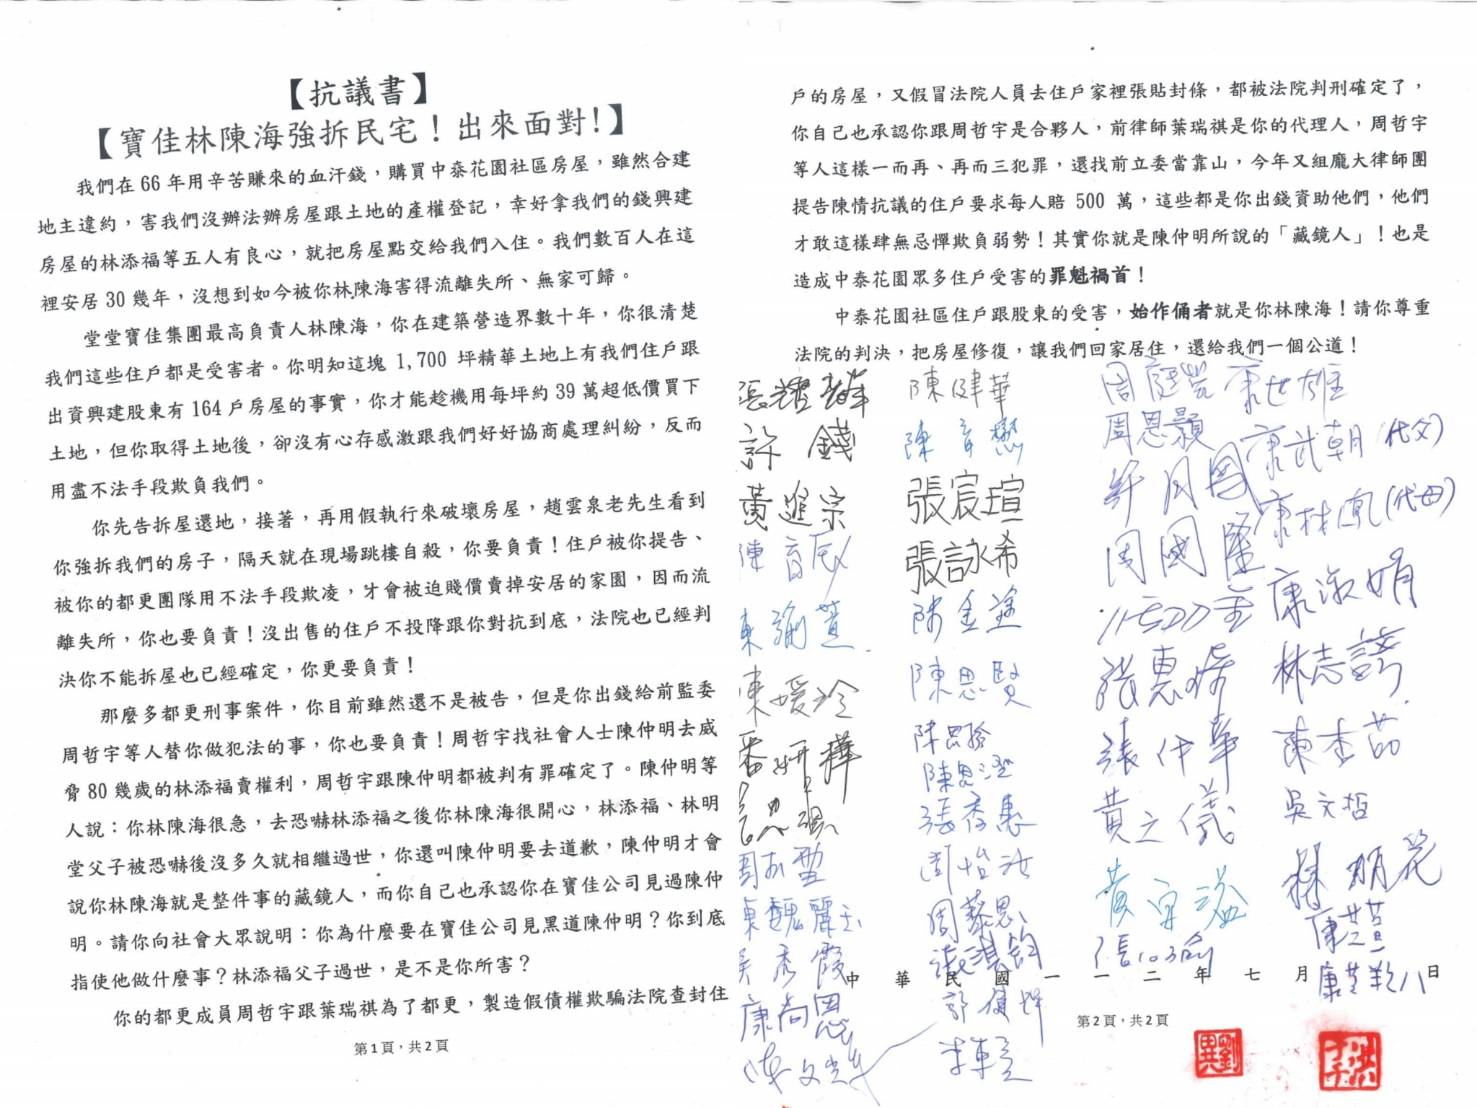 【抗議書】
【寶佳林陳海強拆民宅！出來面對!】
我們在 66 年用辛苦賺來的血汗錢，購買中泰花園社區房屋，雖然合建
地主違約，害我們沒辦法辦房屋跟土地的產權登記，幸好拿我們的錢興建
房屋的林添福等五人有良心，就把房屋點交給我們入住。我們數百人在這
裡安居 30 幾年，沒想到如今被你林陳海害得流離失所、無家可歸。
堂堂寶佳集團最高負責人林陳海，你在建築營造界數十年，你很清楚
我們這些住戶都是受害者。你明知這塊 1,700 坪精華土地上有我們住戶跟
出資興建股東有 164 戶房屋的事實，你才能趁機用每坪約 39 萬超低價買下
土地，但你取得土地後，卻沒有心存感激跟我們好好協商處理糾紛，反而
用盡不法手段欺負我們。
你先告拆屋還地，接著，再用假執行來破壞房屋，趙雲泉老先生看到
你強拆我們的房子，隔天就在現場跳樓自殺，你要負責！住戶被你提告、
被你的都更團隊用不法手段欺凌，才會被迫賤價賣掉安居的家園，因而流
離失所，你也要負責！沒出售的住戶不投降跟你對抗到底，法院也已經判
決你不能拆屋也已經確定，你更要負責！
那麼多都更刑事案件，你目前雖然還不是被告，但是你出錢給前監委
周哲宇等人替你做犯法的事，你也要負責！周哲宇找社會人士陳仲明去威
脅 80 幾歲的林添福賣權利，周哲宇跟陳仲明都被判有罪確定了。陳仲明等
人說：你林陳海很急，去恐嚇林添福之後你林陳海很開心，林添福、林明
堂父子被恐嚇後沒多久就相繼過世，你還叫陳仲明要去道歉，陳仲明才會
說你林陳海就是整件事的藏鏡人，而你自己也承認你在寶佳公司見過陳仲
明。請你向社會大眾說明：你為什麼要在寶佳公司見黑道陳仲明？你到底
指使他做什麼事？林添福父子過世，是不是你所害？
你的都更成員周哲宇跟葉瑞祺為了都更，製造假債權欺騙法院查封住
第1頁，共2頁
戶的房屋，又假冒法院人員去住戶家裡張貼封條，都被法院判刑確定了，
你自己也承認你跟周哲宇是合夥人，前律師葉瑞祺是你的代理人，周哲宇
等人這樣一而再、再而三犯罪，還找前立委當靠山，今年又組龐大律師團
提告陳情抗議的住戶要求每人賠 500 萬，這些都是你出錢資助他們，他們
才敢這樣肆無忌憚欺負弱勢！其實你就是陳仲明所說的「藏鏡人」！也是
造成中泰花園眾多住戶受害的罪魁禍首！
中泰花園社區住戶跟股東的受害，始作俑者就是你林陳海！請你尊重
法院的判決，把房屋修復，讓我們回家居住，還給我們一個公道！
陳健華
周庭瑩
康世雄
許錢
周恩顥
康武朝(代父)
黃進宗
張宸瑄
張詠希
周國隆
康淑娟
陳金塗
張惠婷
林志諺
陳思賢
張仲華
陳杏茹
陳思澄
張秀惠
黃之儀
吳文哲
周怡汝
陳魏麗玉
吳秀霞
康芝萱
康尚恩
中華民國一一二年七月八日
第2頁，共2頁